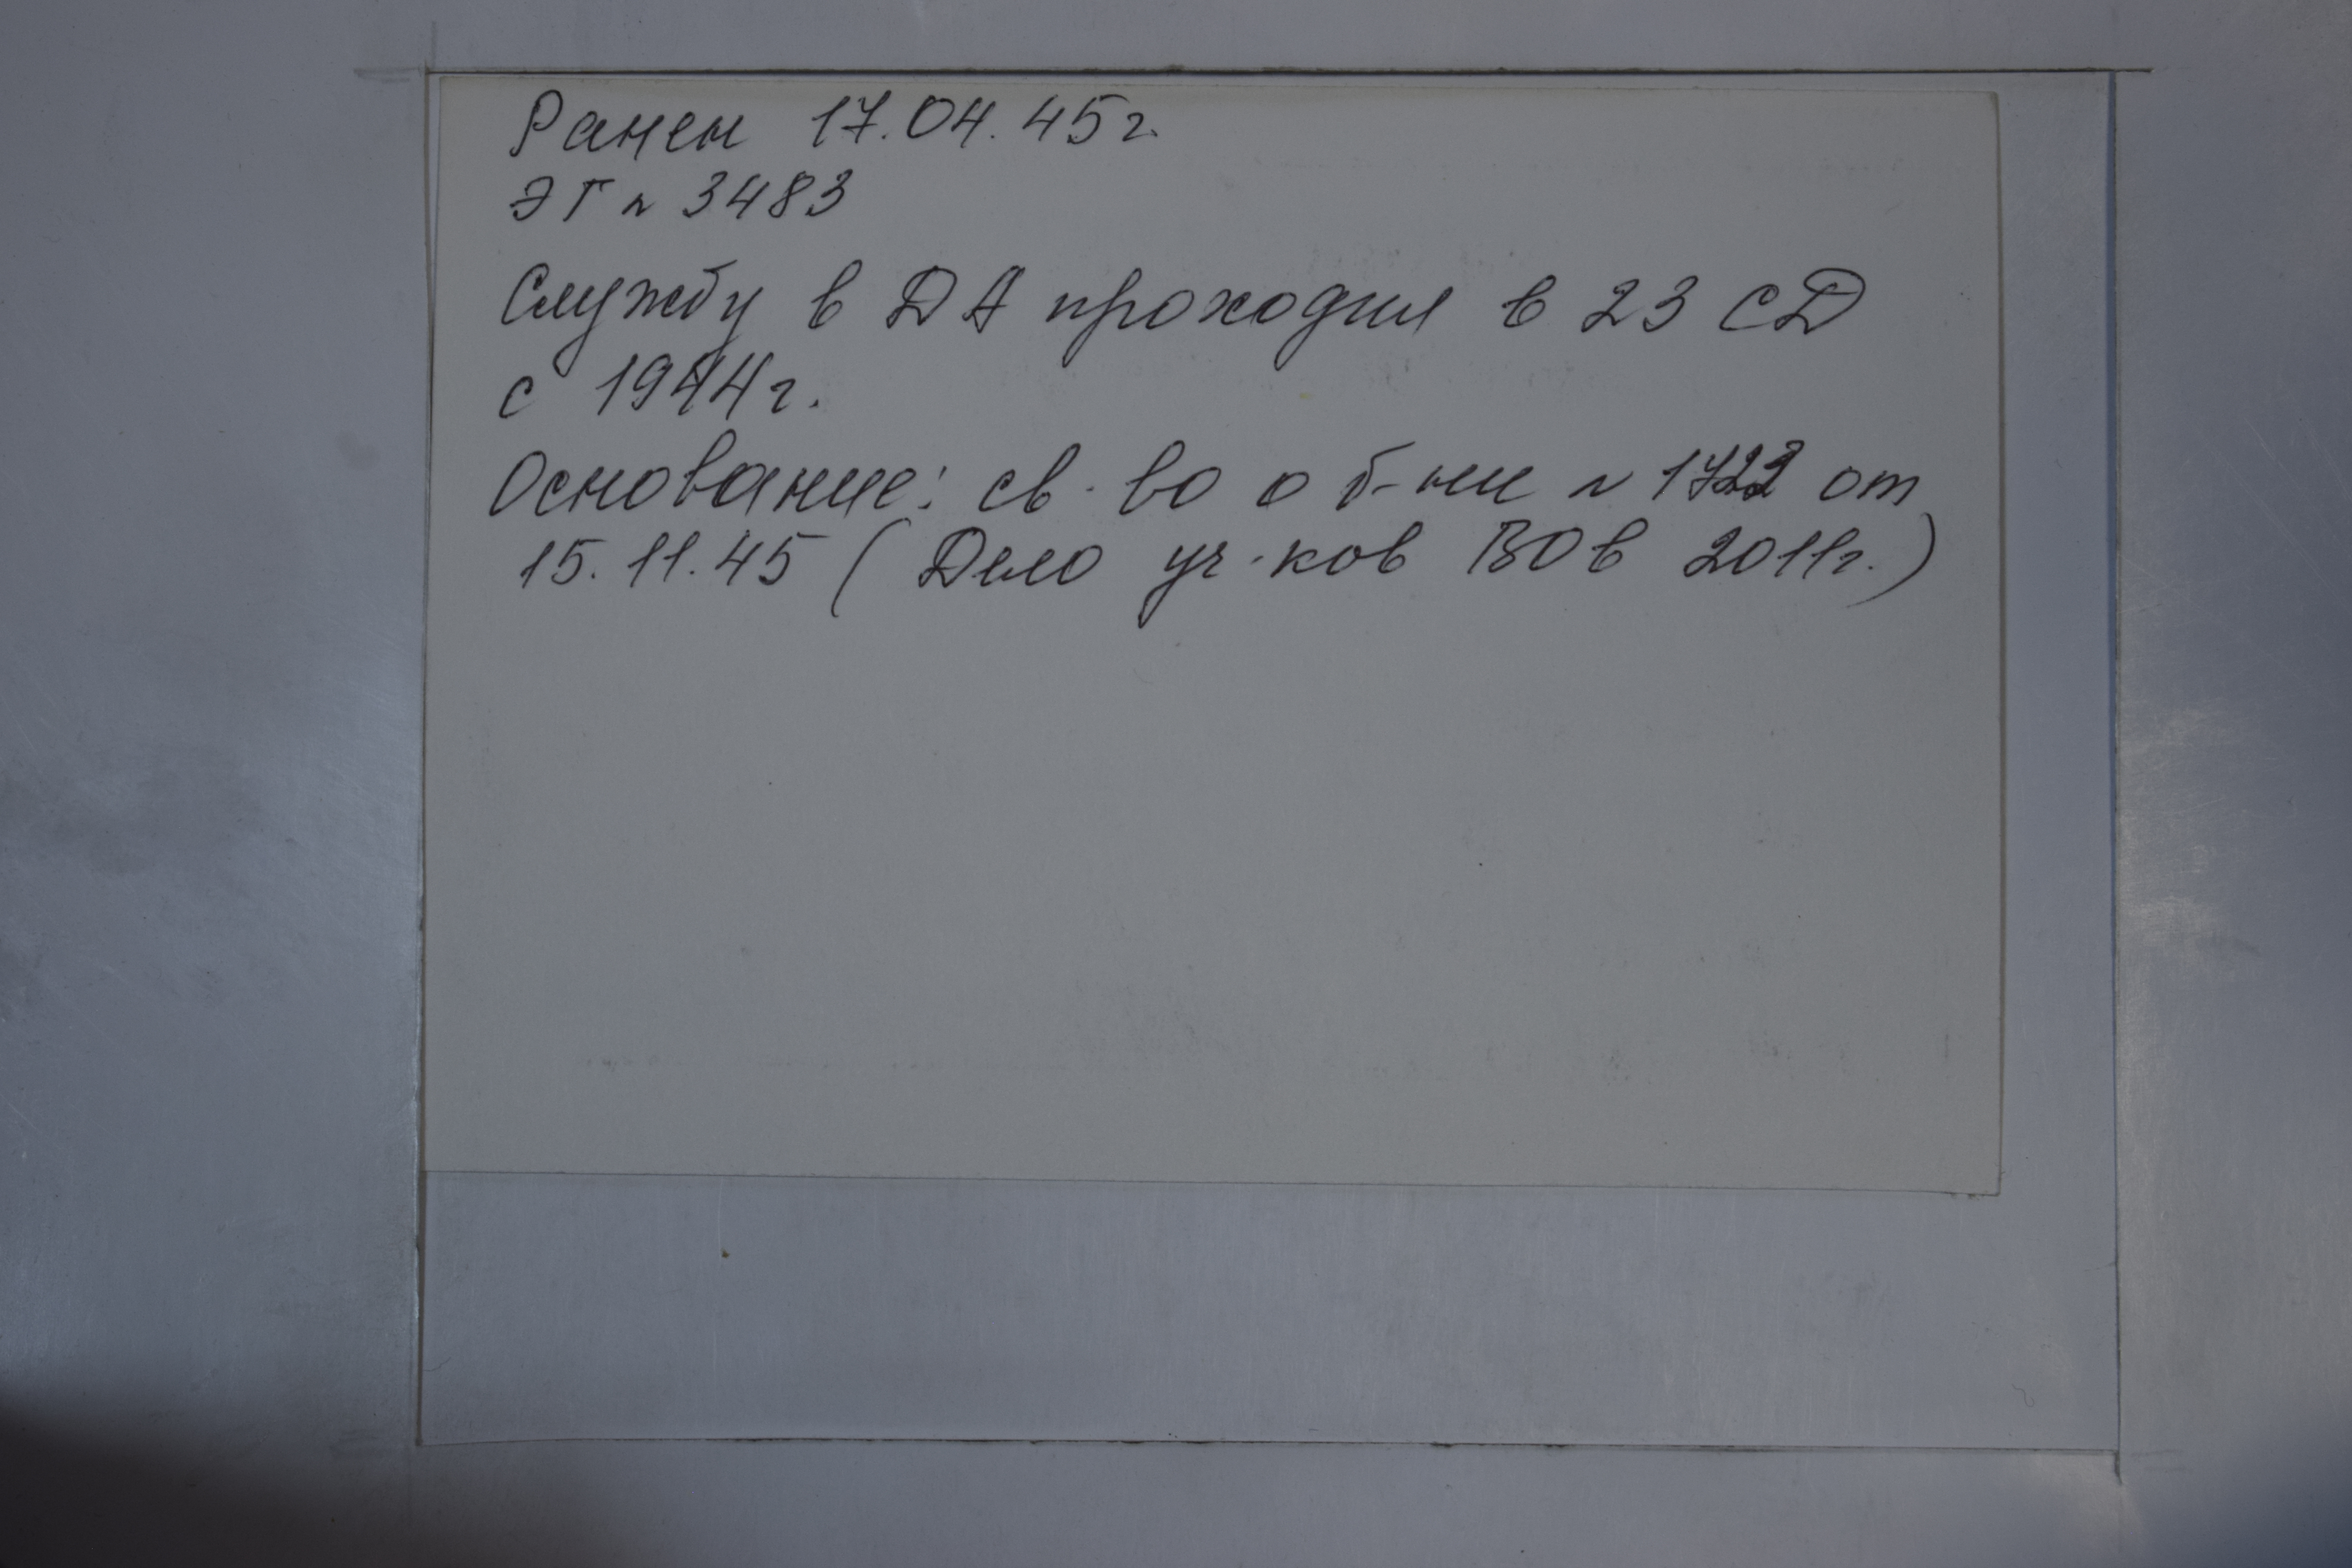 Ранен 17.04.45г.
ЭГ № 3483
Службу в ДА проходил в 23 СД
с 1944г.
Основание: св-во о б-ни № от
15.11.45 (Дело уч-ков ВОв 2011г.)